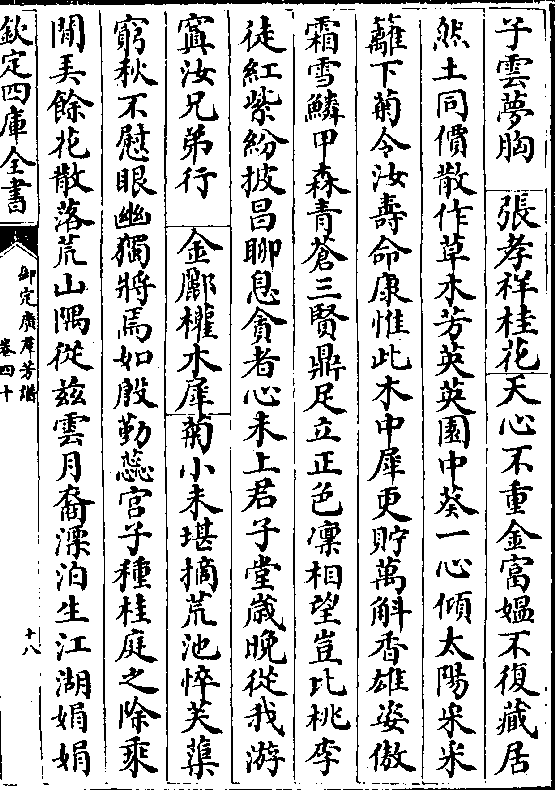 子雲夢胸 張孝祥桂花 天心不重金富媪不復藏居
然土同價散作草木芳英英園中葵一心傾太陽采采
籬下菊令汝壽命康惟此木中犀更貯萬斛香雄姿傲
霜雪鱗甲森青蒼三賢鼎足立正色凜相望豈比桃李
徒紅紫紛披昌聊息貪者心未上君子堂歲晚從我游
寘汝兄弟行 金酈權木犀 菊小未堪摘荒池悴芙蕖
窮秋不慰眼幽獨將焉如殷勤蕊宮子種桂庭之除乘
閒弄餘花散落荒山隅從兹雲月裔漂泊生江湖娟娟
欽定四庫全書
御定廣羣芳譜
卷四十
十八